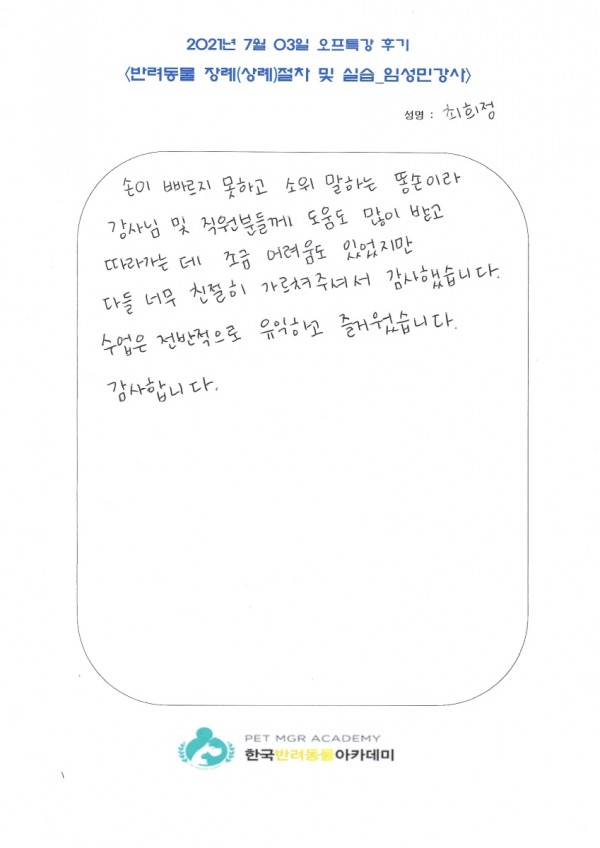 2021년 7월 03일 오프특강 후기
<반려동물 장례(상례)절차 및 실습_임성민강사>
성명 : 최희정
손이 빠르지 못하고 소위 말하는 똥손이라
강사님 및 직원분들께 도움도 많이 받고
따라가는 데 조금 어려움도 있었지만
다들 너무 친절히 가르쳐주셔서 감사했습니다.
수업은 전반적으로 유익하고 즐거웠습니다.
감사합니다.
PET MGR ACADEMY
한국반려동물아카데미